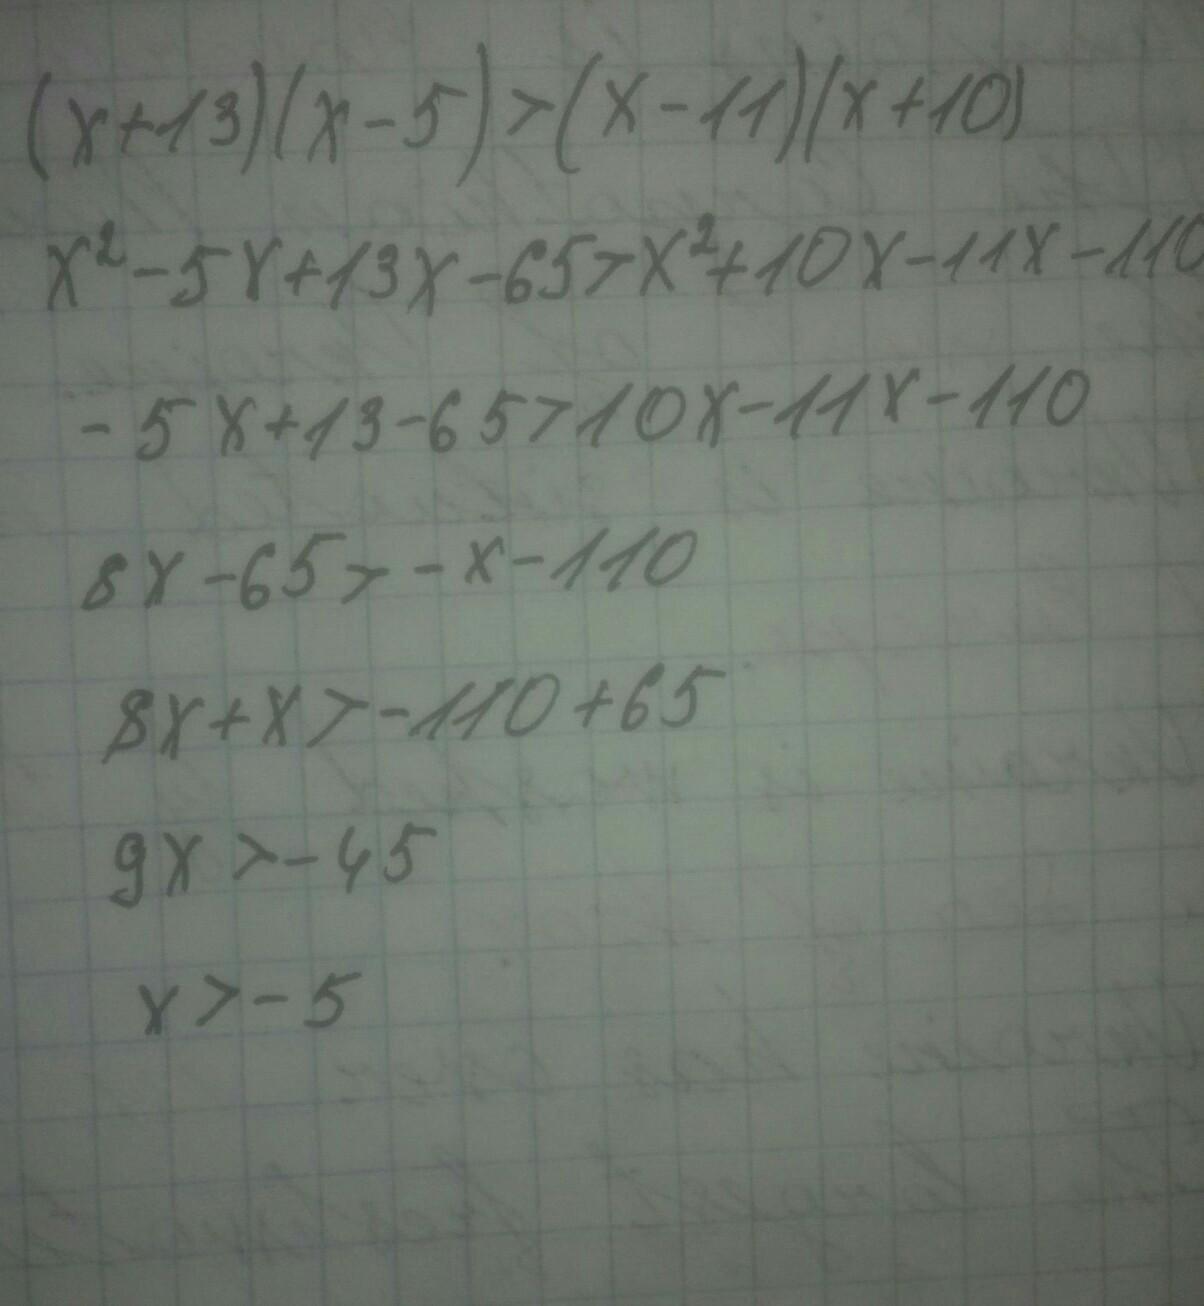 (x+13)(x-5)>(x-11)(x+10)
x²-5x+13x-65>x²+10x-11x-110
-5x+13-65>10x-11x-110
8x-65>-x-110
8x+x>-110+65
9x>-45
x>-5